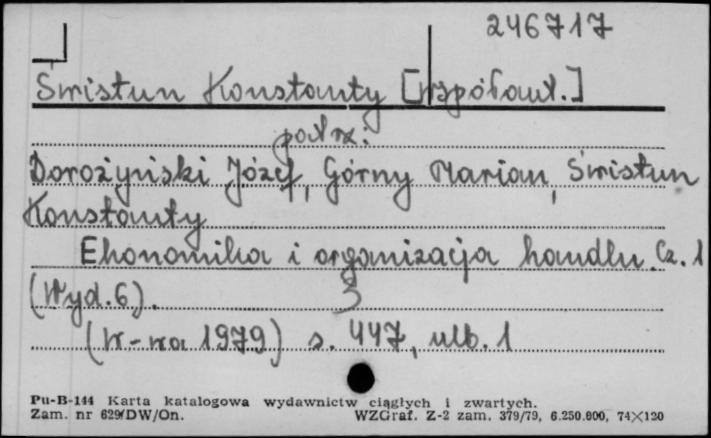 246717
Świstun Konstanty [współaut.]
patrz:
Dorożyński Józef, Górny Marian, Świstun
Konstanty
Ekonomika i organizacja handlu. Cz. 1
(Wyd. 6).
(W-wa 1979) s. 447, ulb. 1
Pu-B-144 Karta katalogowa wydawnictw ciągłych i zwartych.
Zam. nr 629/DW/On. WZGraf. Z-2 zam. 379/79, 6.250.000, 74×120